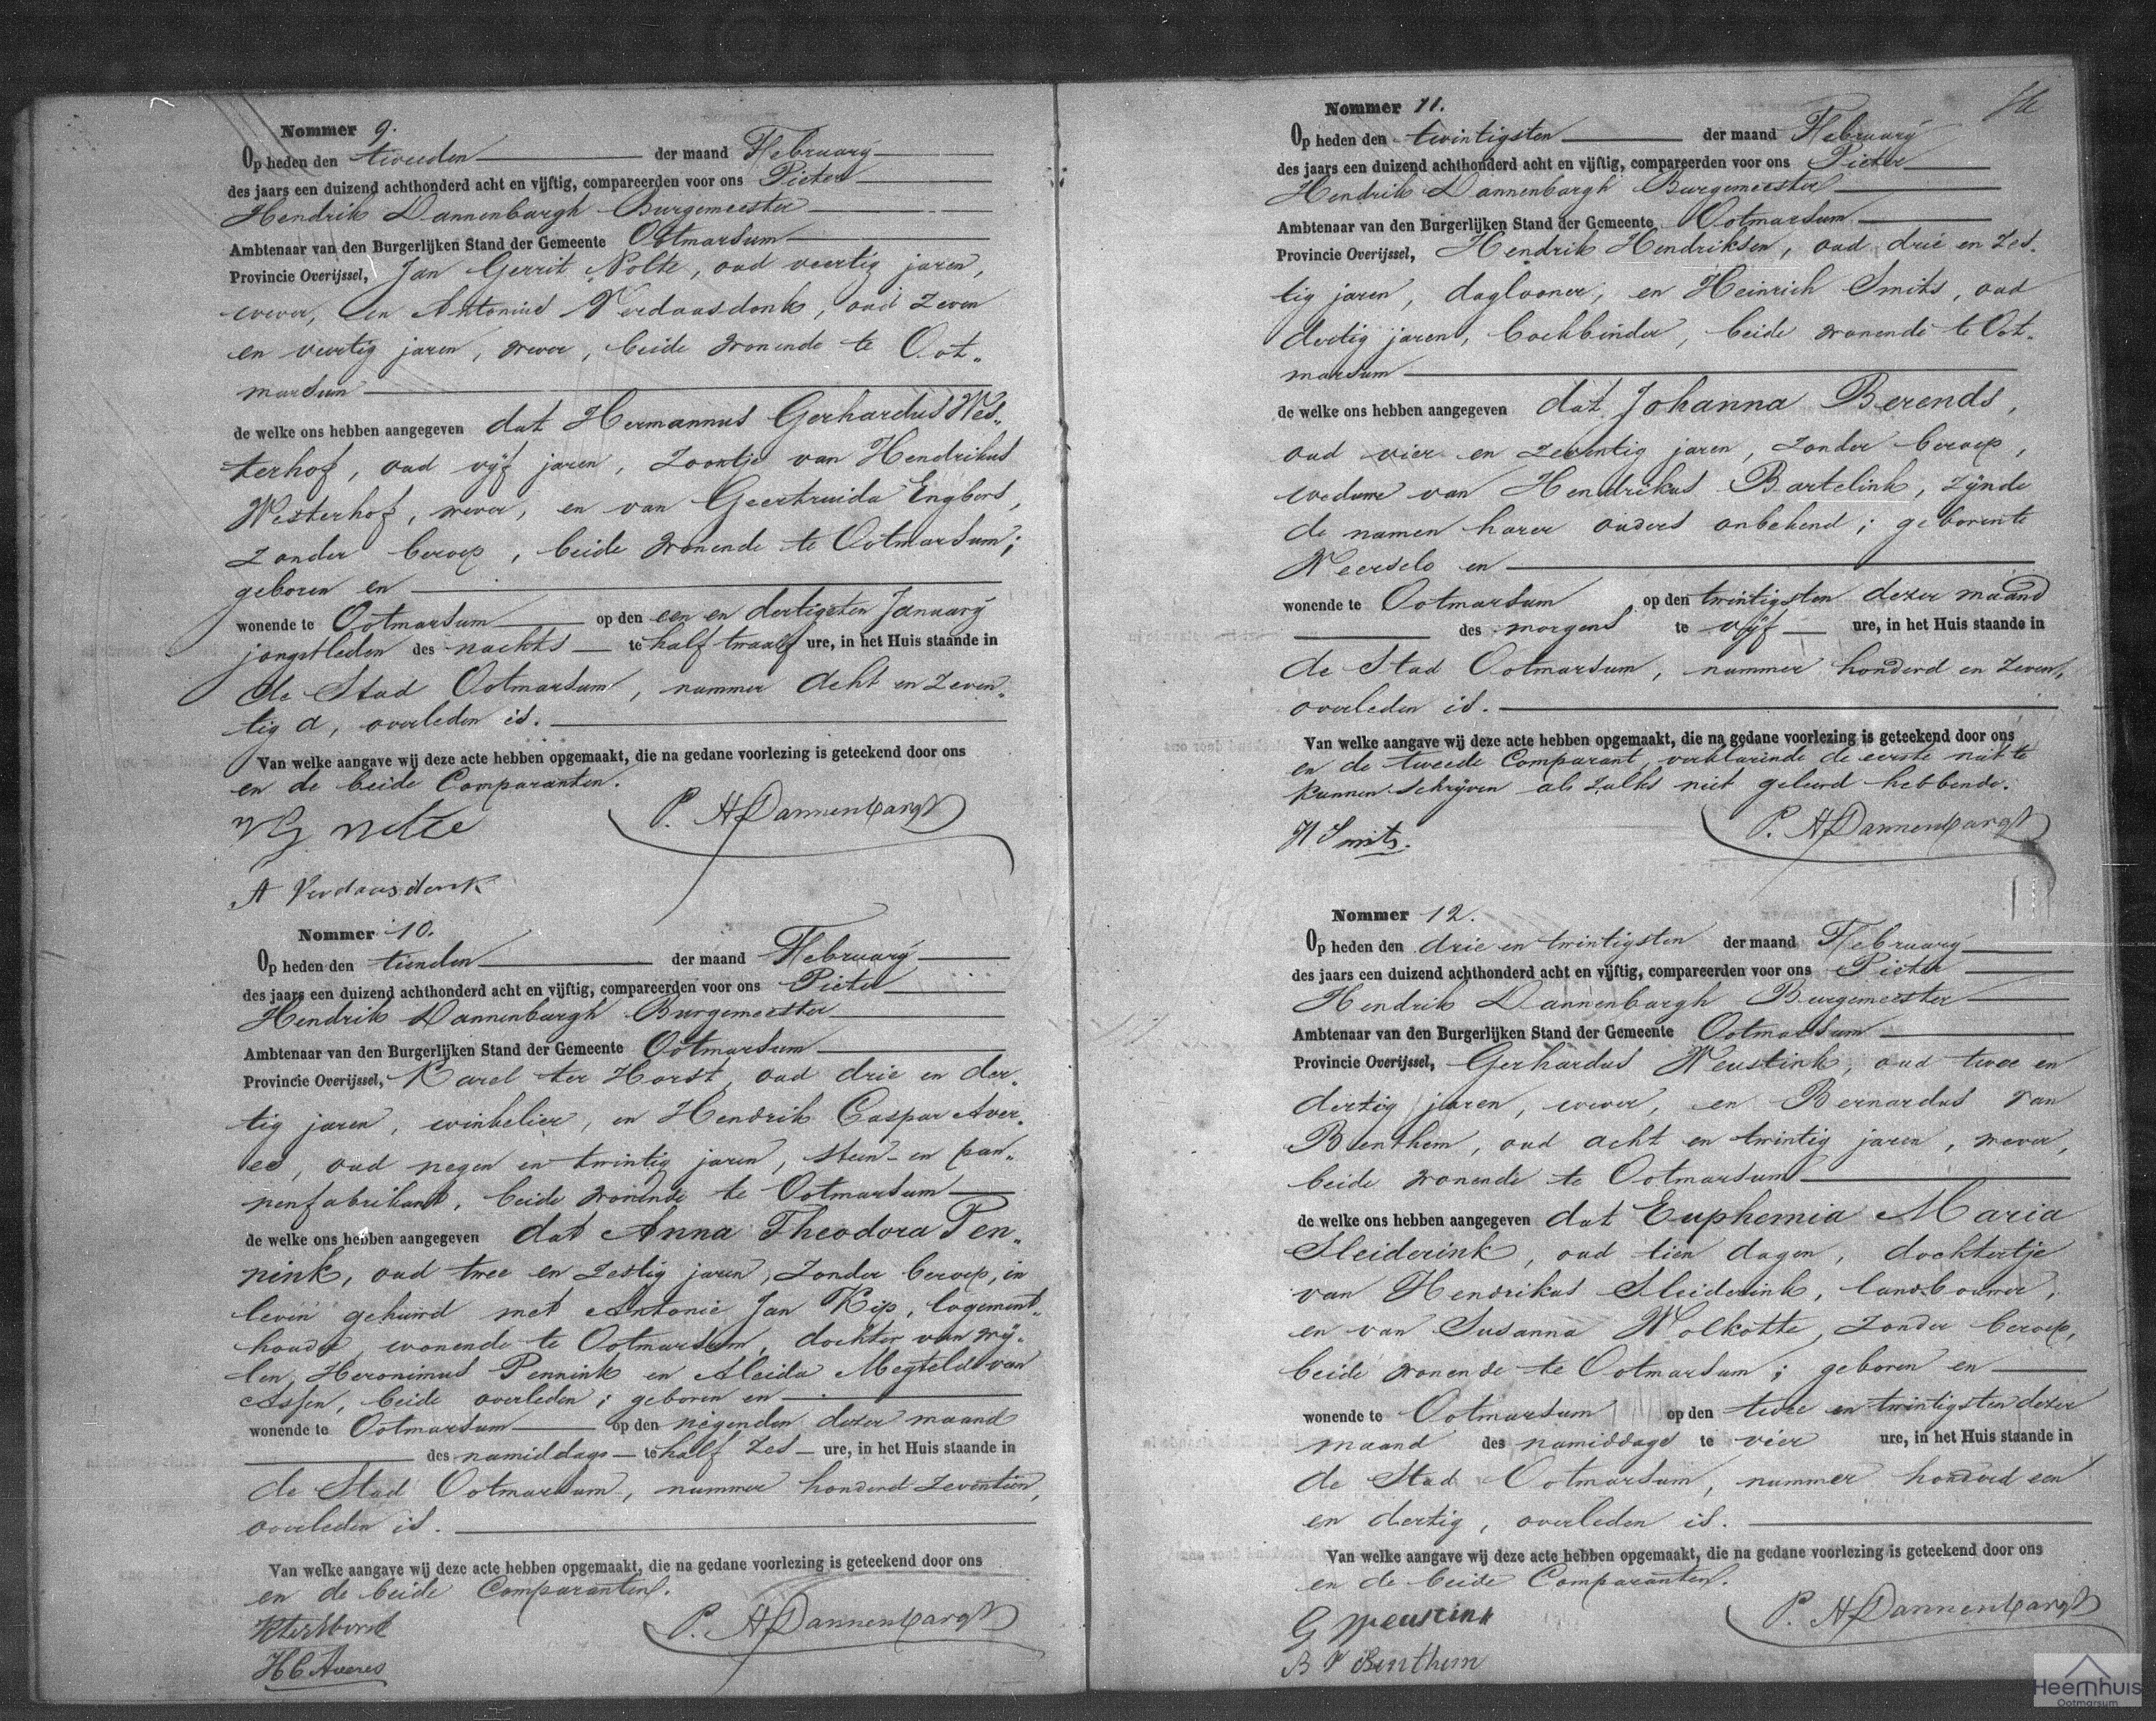 Nommer 9.
Op heden den tweeden der maand February
des jaars een duizend achthonderd acht en vijftig, compareerden voor ons Pieter
Hendrik Dannenbargh Burgemeester
Ambtenaar van den Burgerlijken Stand der Gemeente Ootmarsum
Provincie Overijssel, Jan Gerrit Nolte, oud veertig jaren,
wever, en Antonius Verdaasdonk, oud zeven
en veertig jaren, wever, beide wonende te Oot-
marsum
de welke ons hebben aangegeven dat Hermannus Gerhardus Wes-
terhof, oud vijf jaren, zoontje van Hendrikus
Westerhof, wever, en van Geertruida Engbers,
zonder beroep, beide wonende te Ootmarsum;
geboren en
wonende te Ootmarsum op den een en dertigsten January
jongstleden des nachts te half twaalf ure, in het Huis staande in
de Stad Ootmarsum, nummer acht en zeven-
tig a, overleden is.
Van welke aangave wij deze acte hebben opgemaakt, die na gedane voorlezing is geteekend door ons
en de beide Comparanten.
P. H Dannenbargh
A Verdaasdonk
Nommer 10.
Op heden den tienden der maand February
des jaars een duizend achthonderd acht en vijftig, compareerden voor ons Pieter
Hendrik Dannenbargh Burgemeester
Ambtenaar van den Burgerlijken Stand der Gemeente Ootmarsum
Provincie Overijssel, Karel ter Horst, oud drie en der-
tig jaren, winkelier, en Hendrik Caspar Aver-
es, oud negen en twintig jaren, steen- en pan-
nenfabrikant, beide wonende te Ootmarsum
de welke ons hebben aangegeven dat Anna Theodora Pen-
nink, oud twee en zestig jaren, zonder beroep, in
leven gehuwd met Antonie Jan Kip, logement-
houder, wonende te Ootmarsum, dochter van wij-
len Heronimus Pennink en Aleida Megteld van
Assen, beide overleden; geboren en
wonende te Ootmarsum op den negenden dezer maand
des namiddags te half zes ure, in het Huis staande in
de Stad Ootmarsum, nummer honderd zeventien,
overleden is.
Van welke aangave wij deze acte hebben opgemaakt, die na gedane voorlezing is geteekend door ons
en de beide Comparanten.
K ter Horst
P. H Dannenbargh
H C Averes
Nommer 11.
Op heden den twintigsten der maand February
des jaars een duizend achthonderd acht en vijftig, compareerden voor ons Pieter
Hendrik Dannenbargh Burgemeester
Ambtenaar van den Burgerlijken Stand der Gemeente Ootmarsum
Provincie Overijssel, Hendrik Hendriksen, oud drie en zes-
tig jaren, daglooner, en Heinrich Smits, oud
dertig jaren, boekbinder, beide wonende te Oot-
marsum
de welke ons hebben aangegeven dat Johanna Berends,
oud vier en zeventig jaren, zonder beroep,
weduwe van Hendrikus Bartelink, zijnde
de namen harer ouders onbekend; geboren te
Weerselo en
wonende te Ootmarsum op den twintigsten dezer maand
des morgens te vijf ure, in het Huis staande in
de Stad Ootmarsum, nummer honderd en zeven,
overleden is.
Van welke aangave wij deze acte hebben opgemaakt, die na gedane voorlezing is geteekend door ons
en de tweede Comparant, verklarende de eerste niet te
kunnen schrijven als zulks niet geleerd hebbende.
P. H Dannenbargh
H Smits.
Nommer 12.
Op heden den drie en twintigsten der maand February
des jaars een duizend achthonderd acht en vijftig, compareerden voor ons Pieter
Hendrik Dannenbargh Burgemeester
Ambtenaar van den Burgerlijken Stand der Gemeente Ootmarsum
Provincie Overijssel, Gerhardus Weustink, oud twee en
dertig jaren, wever, en Bernardus van
Benthem, oud acht en twintig jaren, wever,
beide wonende te Ootmarsum
de welke ons hebben aangegeven dat Euphemia Maria
Sleiderink, oud tien dagen, dochtertje
van Hendrikus Sleiderink, landbouwer,
en van Susanna Wolkotte, zonder beroep,
beide wonende te Ootmarsum; geboren en
wonende te Ootmarsum op den twee en twintigsten dezer
maand des namiddags te vier ure, in het Huis staande in
de Stad Ootmarsum, nummer honderd een
en dertig, overleden is.
Van welke aangave wij deze acte hebben opgemaakt, die na gedane voorlezing is geteekend door ons
en de beide Comparanten.
G Weustink
P. H Dannenbargh
B V Benthem
Heemhuis
Ootmarsum